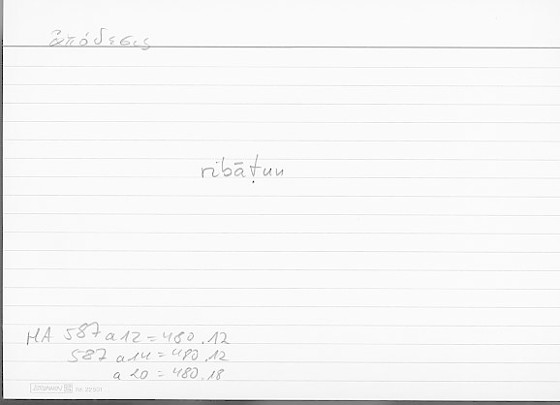 ἀπόδεσις
ribāṭun
HA 587 a 12 = 480.12
587 a 14 = 480.12
a 20 = 480.18